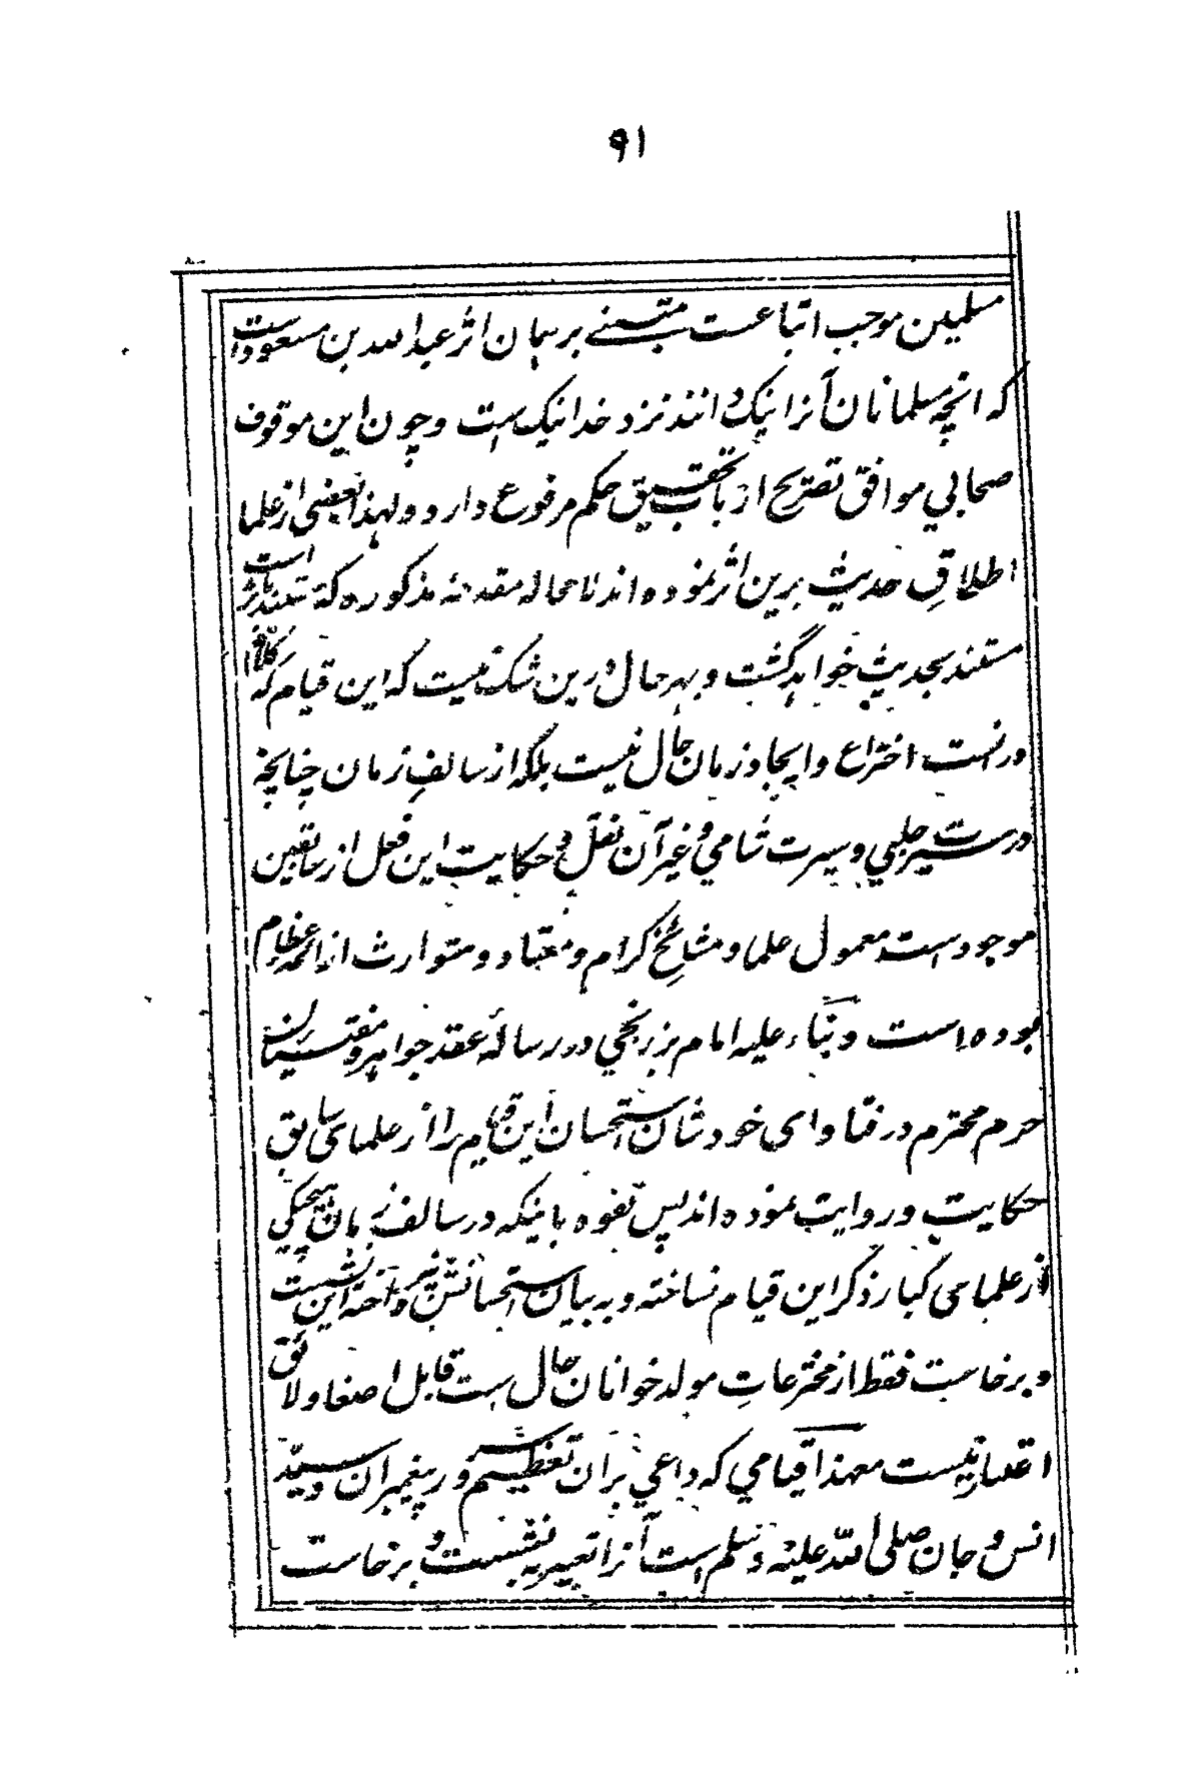 ۹۱
مسلمین موجب اتباعست مبتنے بر همان اثر عبدالله بن مسعود است
که انچه مسلمانان آنرا نیک دانند نزد خدا نیک است وچون این موقوف
صحابي موافق تصریح ارباب تحقیق حکم مرفوع دارد ولهذا بعضی از علما
اطلاقِ حدیث برین اثر نموده اند لامحاله مقدمهٔ مذکوره که مستند باثر است
مستند بحدیث خواهد گشت وبهرحال درین شک نیست که این قیام که کلام
درانست اختراع وایجاد زمان حال نیست بلکه از سالفِ زمان چنانچه
در سیرت حلبي وسیرت شامي وغیر آن نقل و حکایت این فعل از سابقین
موجود است معمول علما ومشائخ کرام ومعتاد ومتوارث از ائمه عظام
بوده است وبناء علیه امام برزنجي در رسالهٔ عقد جواهر ومفتیان
حرم محترم در فتاوای خودشان استحسان این قیام را از علمای سابق
حکایت وروایت نموده اند پس تفوه باینکه در سالف زمان هیچیکي
از علمای کبار ذکر این قیام نساخته وبه بیان استحسانش نپرداخته این نشست
وبرخاست فقط از مخترعاتِ مولد خوانان حال ست قابل اصغا ولائق
اعتنا نیست معهذا قیامي که داعي بران تعظیم سرور پیغمبران وسید
انس وجان صلی الله علیه وسلم است آنرا تعبیر به نشست وبرخاست